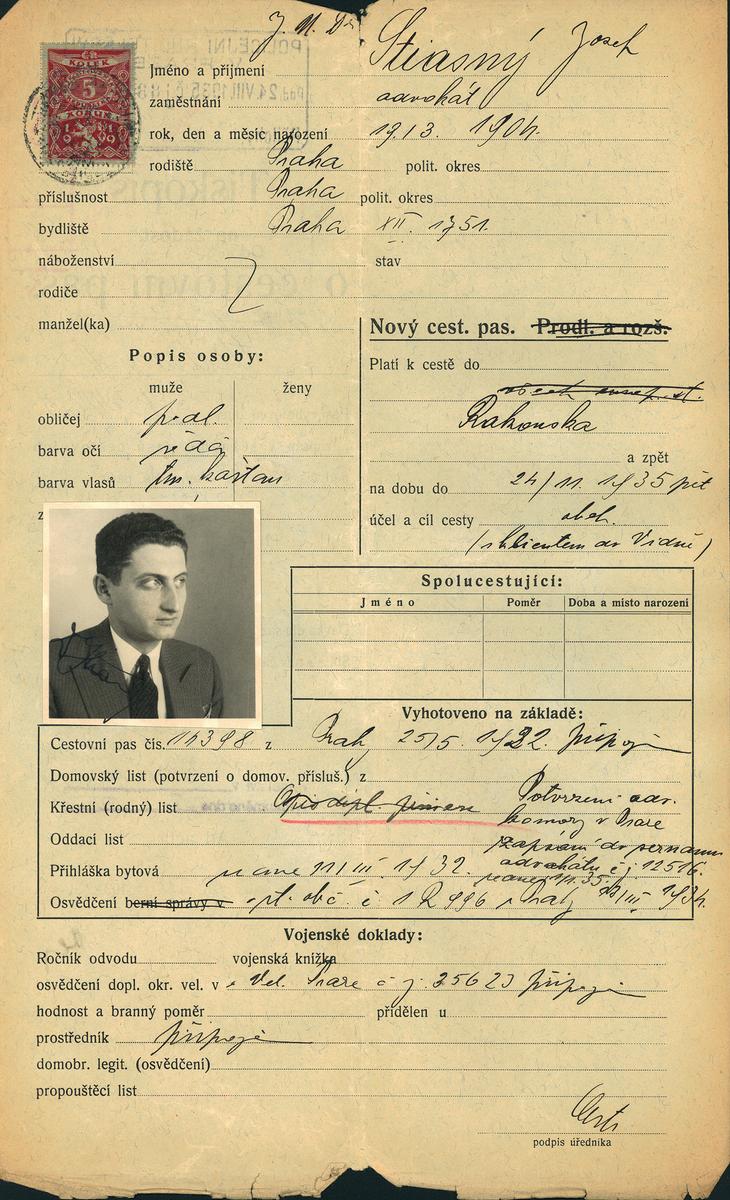 J. U. Dr. Stiasný Josef
ČR.
KOLEK
5
KORUN
1919
Jméno a příjmení
zaměstnání advokát
rok, den a měsíc narození 19./3. 1904.
rodiště Praha polit. okres
příslušnost Praha polit. okres
bydliště Praha XII. 1751.
náboženství stav
rodiče
manžel(ka)
Nový cest. pas. Prodl. a rozš.
Popis osoby:
Platí k cestě do
muže ženy
Rakouska
obličej podl.
barva očí šedá a zpět
barva vlasů tm. kaštan na dobu do 24/11. 1935 pět
účel a cíl cesty obch.
(s klientem do Vídně)
Spolucestující:
Jméno Poměr Doba a místo narození
Vyhotoveno na základě:
Cestovní pas čís. 14398 z Prahy 25/5. 1932. připojen
Domovský list (potvrzení o domov. přísluš.) z
Křestní (rodný) list Potvrzení adv.
komory v Praze
Oddací list zapsání do seznamu
advokátů č j 12516.
Přihláška bytová z 11/III. 1932.
Osvědčení berní správy v 1934.
Vojenské doklady:
Ročník odvodu vojenská knížka
osvědčení dopl. okr. vel. v Vel. Praze č j. 25623 připojen
hodnost a branný poměr přidělen u
prostředník připojen
domobr. legit. (osvědčení)
propouštěcí list
podpis úředníka